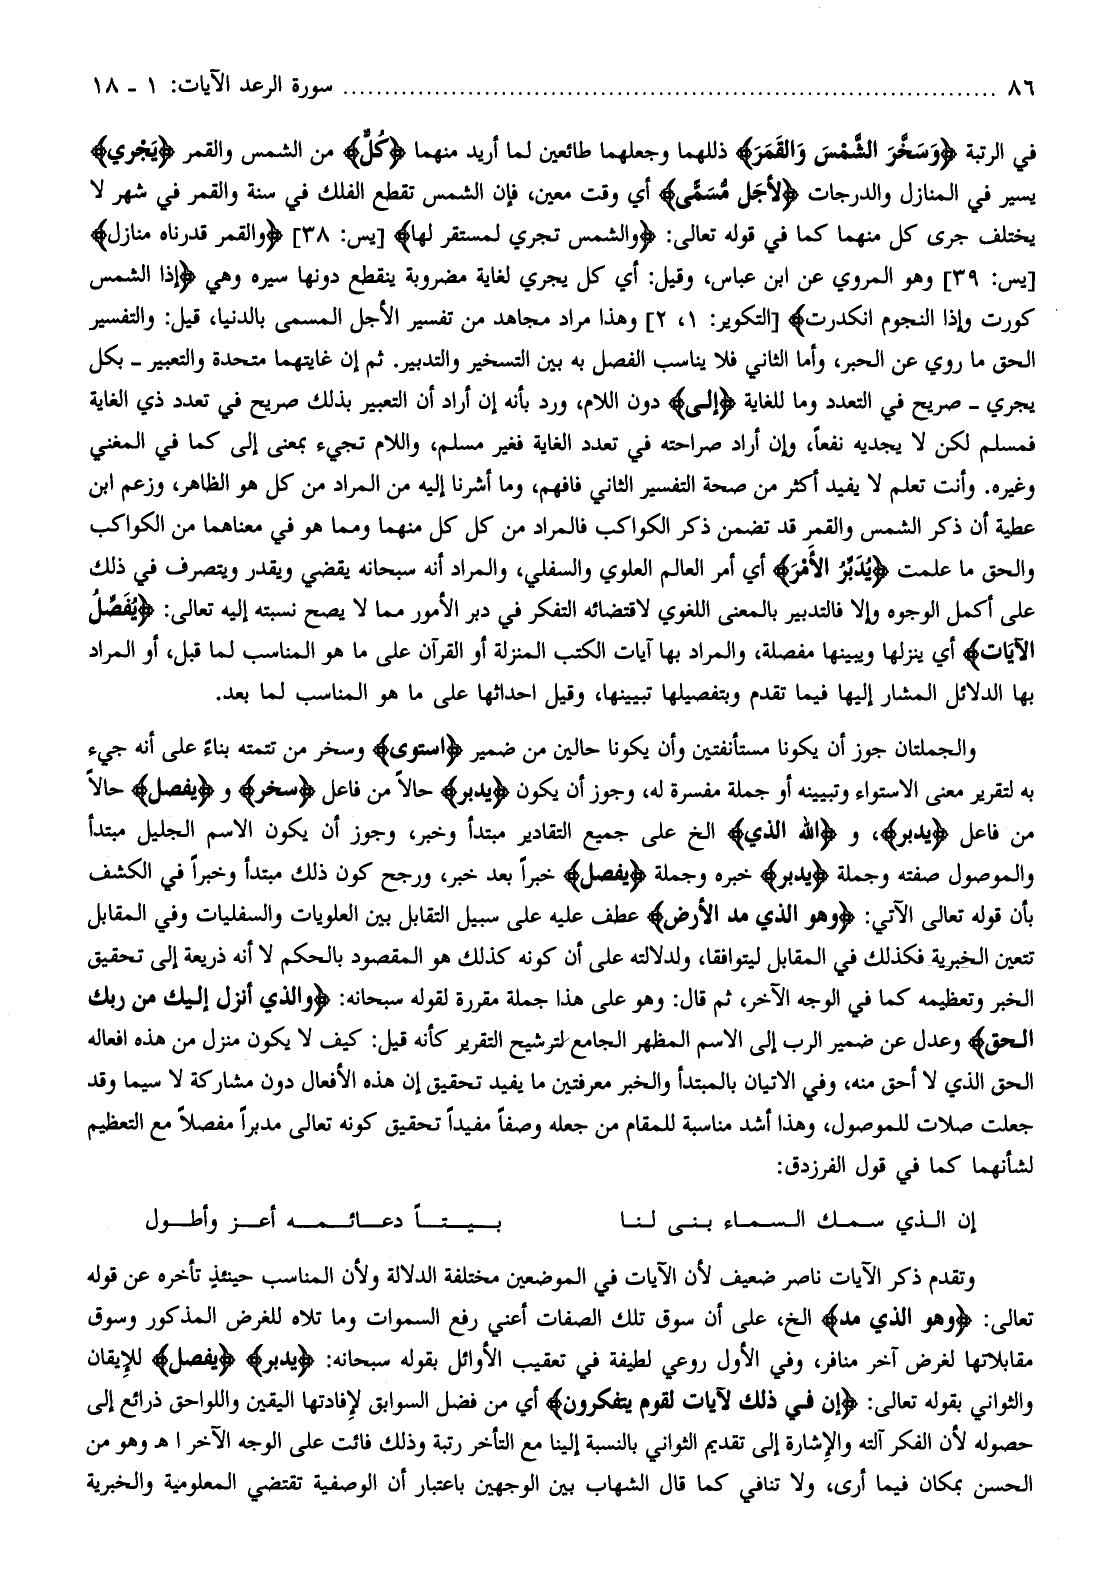 ٨٦ ........................................................................ سورة الرعد الآيات: ١ ـ ١٨
في الرتبة ﴿وَسَخَّرَ الشَّمْسَ وَالقَمَرَ﴾ ذللهما وجعلهما طائعين لما أريد منهما ﴿كُلٌّ﴾ من الشمس والقمر ﴿يَجْري﴾
يسير في المنازل والدرجات ﴿لأجَل مُسَمًّى﴾ أي وقت معين، فإن الشمس تقطع الفلك في سنة والقمر في شهر لا
يختلف جرى كل منهما كما في قوله تعالى: ﴿والشمس تجري لمستقر لها﴾ [يس: ٣٨] ﴿والقمر قدرناه منازل﴾
[يس: ٣٩] وهو المروي عن ابن عباس، وقيل: أي كل يجري لغاية مضروبة ينقطع دونها سيره وهي ﴿إذا الشمس
كورت وإذا النجوم انكدرت﴾ [التكوير: ١، ٢] وهذا مراد مجاهد من تفسير الأجل المسمى بالدنيا، قيل: والتفسير
الحق ما روي عن الحبر، وأما الثاني فلا يناسب الفصل به بين التسخير والتدبير. ثم إن غايتهما متحدة والتعبير ـ بكل
يجري ـ صريح في التعدد وما للغاية ﴿إلى﴾ دون اللام، ورد بأنه إن أراد أن التعبير بذلك صريح في تعدد ذي الغاية
فمسلم لكن لا يجديه نفعاً، وإن أراد صراحته في تعدد الغاية فغير مسلم، واللام تجيء بمعنى إلى كما في المغني
وغيره. وأنت تعلم لا يفيد أكثر من صحة التفسير الثاني فافهم، وما أشرنا إليه من المراد من كل هو الظاهر، وزعم ابن
عطية أن ذكر الشمس والقمر قد تضمن ذكر الكواكب فالمراد من كل كل منهما ومما هو في معناهما من الكواكب
والحق ما علمت ﴿يُدَبِّرُ الأَمْرَ﴾ أي أمر العالم العلوي والسفلي، والمراد أنه سبحانه يقضي ويقدر ويتصرف في ذلك
على أكمل الوجوه وإلا فالتدبير بالمعنى اللغوي لاقتضائه التفكر في دبر الأمور مما لا يصح نسبته إليه تعالى: ﴿يُفَصِّلُ
الآيَات﴾ أي ينزلها ويبينها مفصلة، والمراد بها آيات الكتب المنزلة أو القرآن على ما هو المناسب لما قبل، أو المراد
بها الدلائل المشار إليها فيما تقدم وبتفصيلها تبيينها، وقيل احداثها على ما هو المناسب لما بعد.
والجملتان جوز أن يكونا مستأنفتين وأن يكونا حالين من ضمير ﴿استوى﴾ وسخر من تتمته بناءً على أنه جيء
به لتقرير معنى الاستواء وتبيينه أو جملة مفسرة له، وجوز أن يكون ﴿يدبر﴾ حالاً من فاعل ﴿سخر﴾ و ﴿يفصل﴾ حالاً
من فاعل ﴿يدبر﴾، و ﴿الله الذي﴾ الخ على جميع التقادير مبتدأ وخبر، وجوز أن يكون الاسم الجليل مبتدأ
والموصول صفته وجملة ﴿يدبر﴾ خبره وجملة ﴿يفصل﴾ خبراً بعد خبر، ورجح كون ذلك مبتدأ وخبراً في الكشف
بأن قوله تعالى الآتي: ﴿وهو الذي مد الأرض﴾ عطف عليه على سبيل التقابل بين العلويات والسفليات وفي المقابل
تتعين الخبرية فكذلك في المقابل ليتوافقا، ولدلالته على أن كونه كذلك هو المقصود بالحكم لا أنه ذريعة إلى تحقيق
الخبر وتعظيمه كما في الوجه الآخر، ثم قال: وهو على هذا جملة مقررة لقوله سبحانه: ﴿والذي أنزل إليك من ربك
الحق﴾ وعدل عن ضمير الرب إلى الاسم المظهر الجامع لترشيح التقرير كأنه قيل: كيف لا يكون منزل من هذه افعاله
الحق الذي لا أحق منه، وفي الاتيان بالمبتدأ والخبر معرفتين ما يفيد تحقيق إن هذه الأفعال دون مشاركة لا سيما وقد
جعلت صلات للموصول، وهذا أشد مناسبة للمقام من جعله وصفاً مفيداً تحقيق كونه تعالى مدبراً مفصلاً مع التعظيم
لشأنهما كما في قول الفرزدق:
إن الذي سمك السماء بنى لنا بيتاً دعائمه أعز وأطول
وتقدم ذكر الآيات ناصر ضعيف لأن الآيات في الموضعين مختلفة الدلالة ولأن المناسب حينئذٍ تأخره عن قوله
تعالى: ﴿وهو الذي مد﴾ الخ، على أن سوق تلك الصفات أعني رفع السموات وما تلاه للغرض المذكور وسوق
مقابلاتها لغرض آخر منافر، وفي الأول روعي لطيفة في تعقيب الأوائل بقوله سبحانه: ﴿يدبر﴾ ﴿يفصل﴾ للإيقان
والثواني بقوله تعالى: ﴿إن في ذلك لآيات لقوم يتفكرون﴾ أي من فضل السوابق لإفادتها اليقين واللواحق ذرائع إلى
حصوله لأن الفكر آلته والإشارة إلى تقديم الثواني بالنسبة إلينا مع التأخر رتبة وذلك فائت على الوجه الآخر ا هـ وهو من
الحسن بمكان فيما أرى، ولا تنافي كما قال الشهاب بين الوجهين باعتبار أن الوصفية تقتضي المعلومية والخبرية